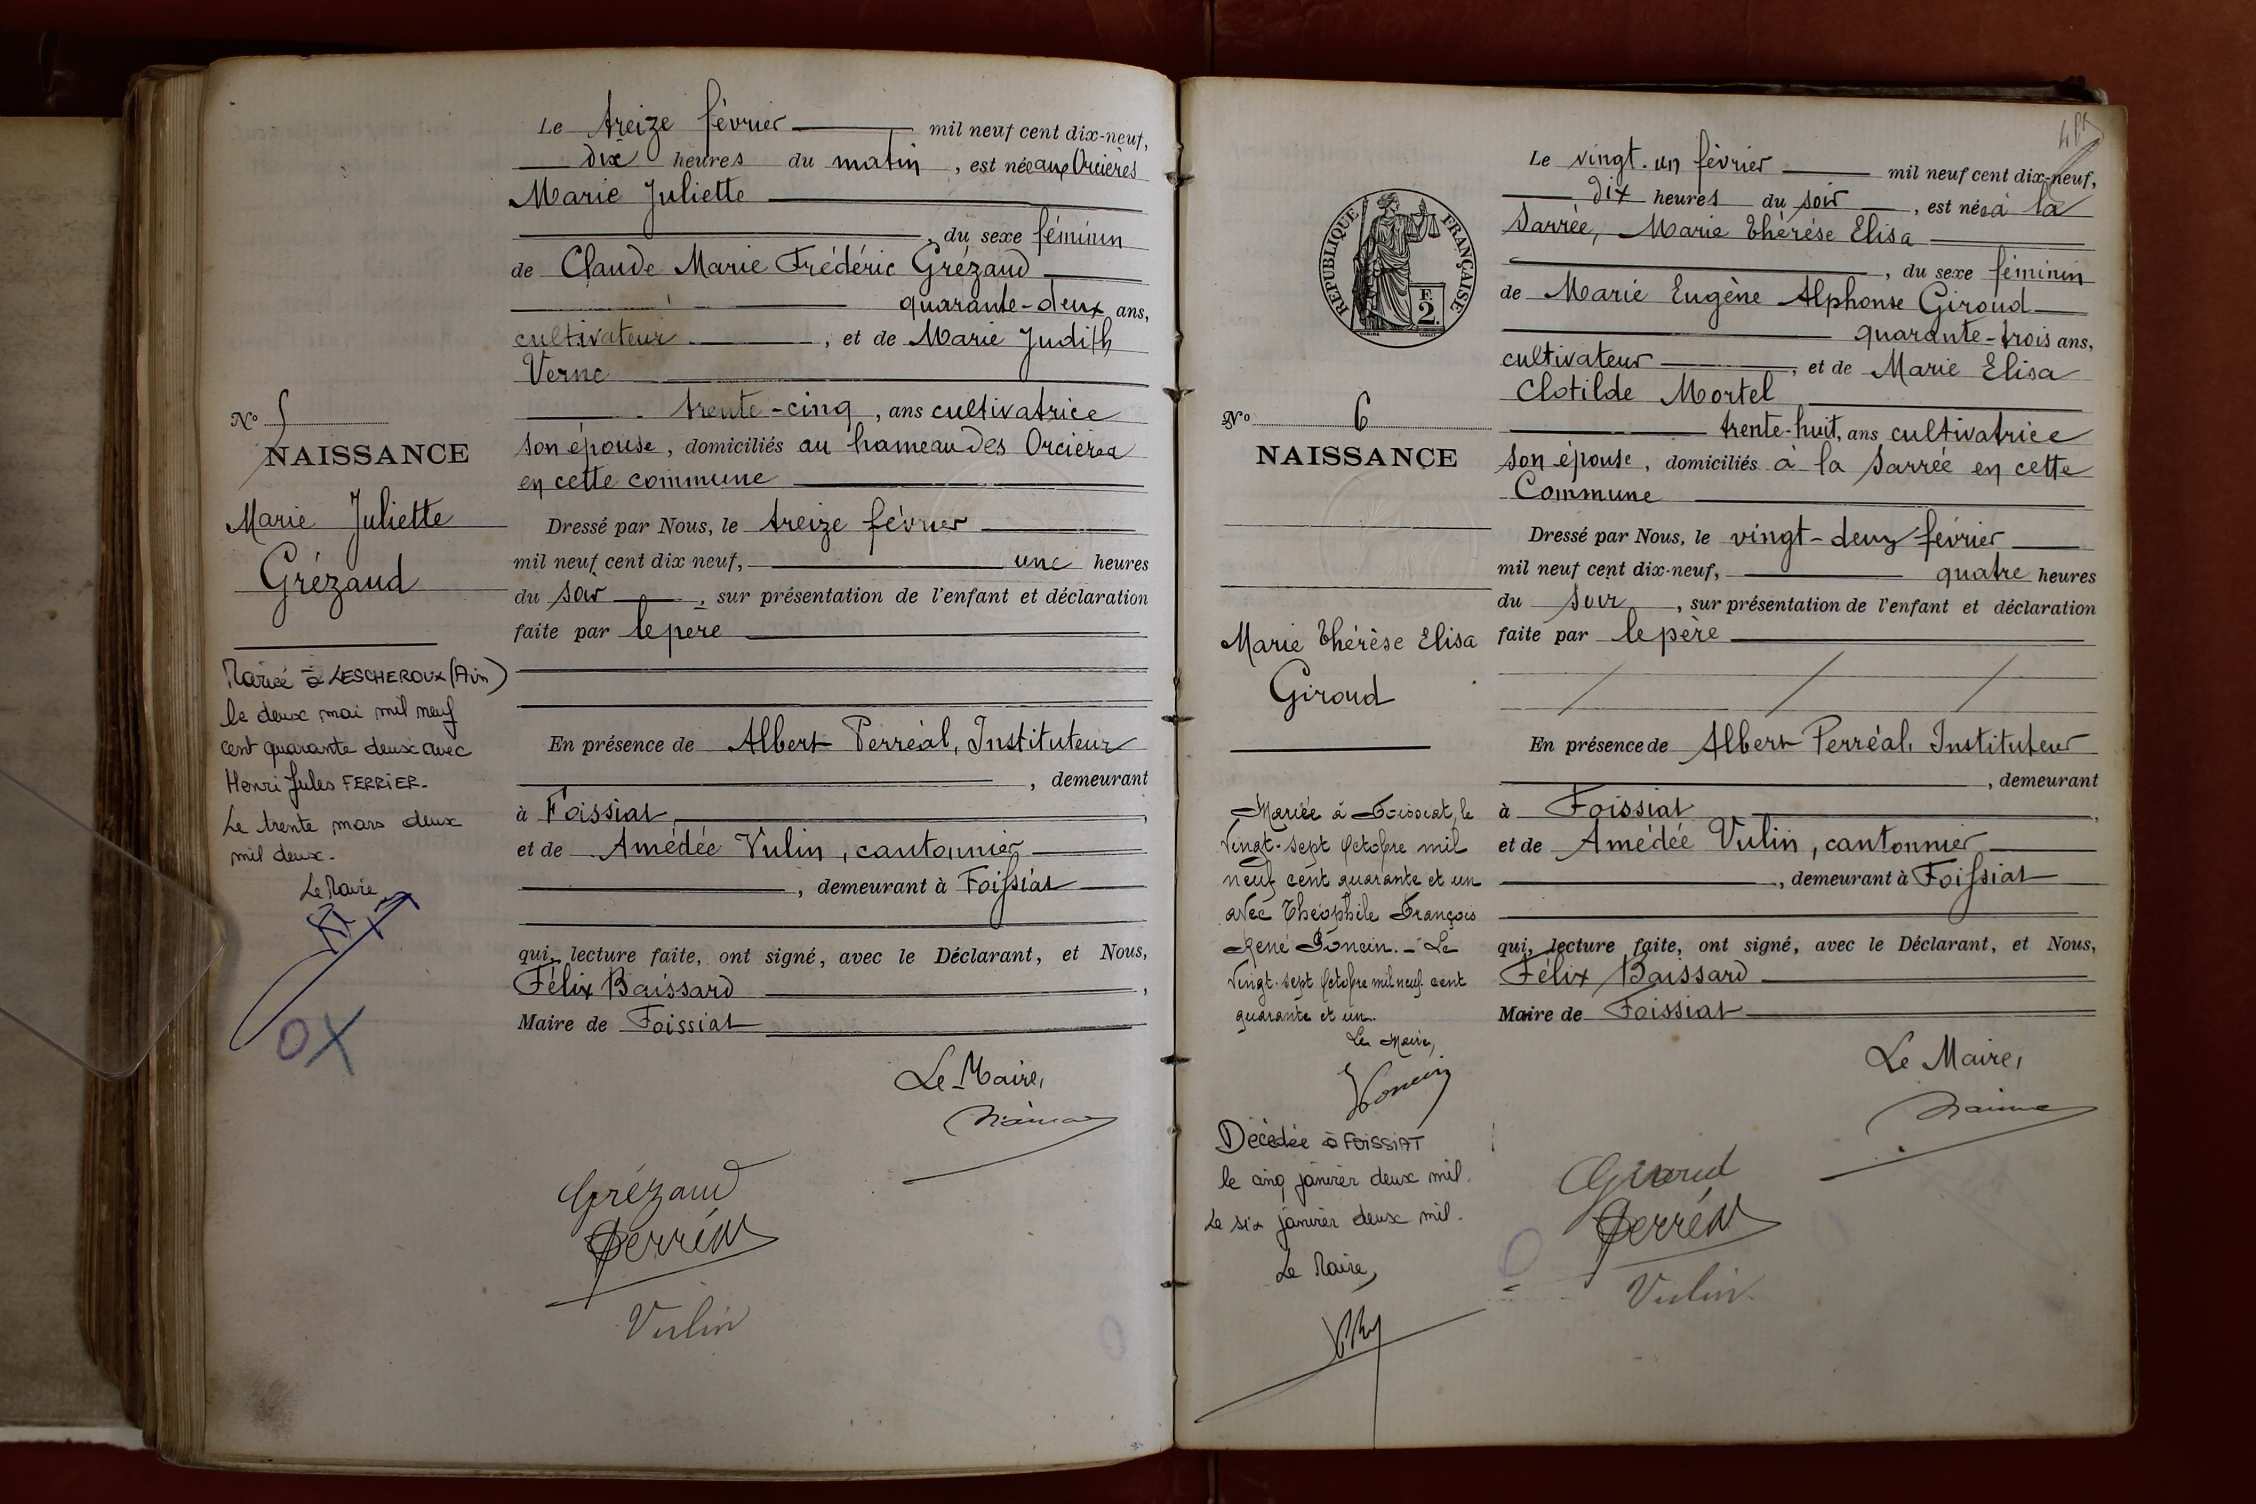 Le treize février mil neuf cent dix-neuf,
dix heures du matin, est née aux Orcières
Marie Juliette
, du sexe féminin
de Claude Marie Frédéric Grézaud
quarante-deux ans,
cultivateur, et de Marie Judith
Verne
trente-cinq, ans cultivatrice
son épouse, domiciliés au hameau des Orcières
en cette commune
Dressé par Nous, le treize février
mil neuf cent dix neuf, une heures
du soir, sur présentation de l'enfant et déclaration
faite par le père
En présence de Albert Perréal, Instituteur
, demeurant
à Foissiat,
et de Amédée Vulin, cantonnier
, demeurant à Foissiat
qui, lecture faite, ont signé, avec le Déclarant, et Nous,
Félix Baissard,
Maire de Foissiat
Le Maire,
Grézaud
Perréal
Vulin
No 5
NAISSANCE
Marie Juliette
Grézaud
Mariée à LESCHEROUX (Ain)
le deux mai mil neuf
cent quarante deux avec
Henri Jules FERRIER.
Le trente mars deux
mil deux.
Le Maire
OX
Le vingt-un février mil neuf cent dix-neuf,
dix heures du soir, est née à la
Sarrée, Marie Thérèse Elisa
, du sexe féminin
de Marie Eugène Alphonse Giroud
quarante-trois ans,
cultivateur, et de Marie Elisa
Clotilde Mortel
trente-huit, ans cultivatrice
son épouse, domiciliés à la Sarrée en cette
Commune
Dressé par Nous, le vingt-deux février
mil neuf cent dix-neuf, quatre heures
du soir, sur présentation de l'enfant et déclaration
faite par le père
En présence de Albert Perréal, Instituteur
, demeurant
à Foissiat,
et de Amédée Vulin, cantonnier
, demeurant à Foissiat
qui, lecture faite, ont signé, avec le Déclarant, et Nous,
Félix Baissard
Maire de Foissiat
Le Maire,
Giroud
Perréal
Vulin
RÉPUBLIQUE FRANÇAISE
F. 2.
No 6
NAISSANCE
Marie Thérèse Elisa
Giroud
Mariée à Foissiat, le
vingt-sept Octobre mil
neuf cent quarante et un
avec Théophile François
René Poncin. - Le
vingt-sept Octobre mil neuf cent
quarante et un.
Le Maire,
Poncin
Décédée à FOISSIAT
le cinq janvier deux mil.
Le six janvier deux mil.
Le Maire,